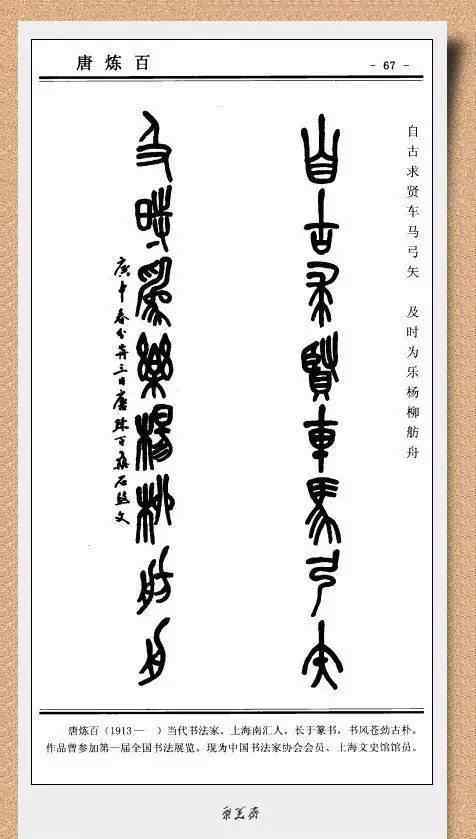 唐炼百
- 67 -
自古求贤车马弓矢 及时为乐杨柳舫舟
自古求贤车马弓矢
及时为乐杨柳舫舟
庚申春分前三日唐炼百集石鼓文
唐炼百（1913—　）当代书法家，上海南汇人，长于篆书，书风苍劲古朴。
作品曾参加第一届全国书法展览，现为中国书法家协会会员、上海文史馆馆员。